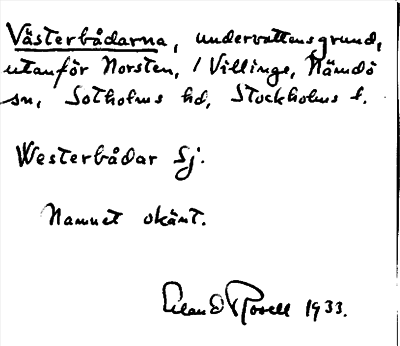 Västerbådarna, undervattensgrund,
utanför Norsten, / Villinge, Nämdö
sn, Sotholms hd, Stockholms l.
Westerbådar Sj.
Namnet okänt.
Erland Rosell 1933.